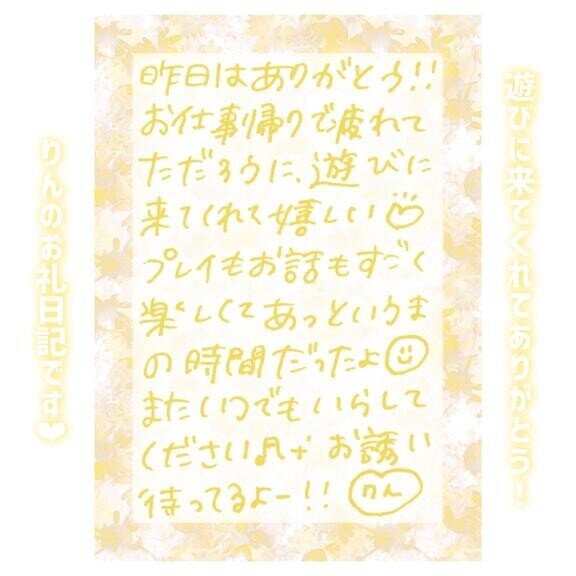 遊びに来てくれてありがとう!
昨日はありがとう!!
お仕事帰りで疲れて
ただろうに、遊びに
来てくれて嬉しい♡
プレイもお話もすごく
楽しくてあっというま
の時間だったよ☺
またいつでもいらして
ください♫+ お誘い
待ってるよー!! りん
りんのお礼日記です❤